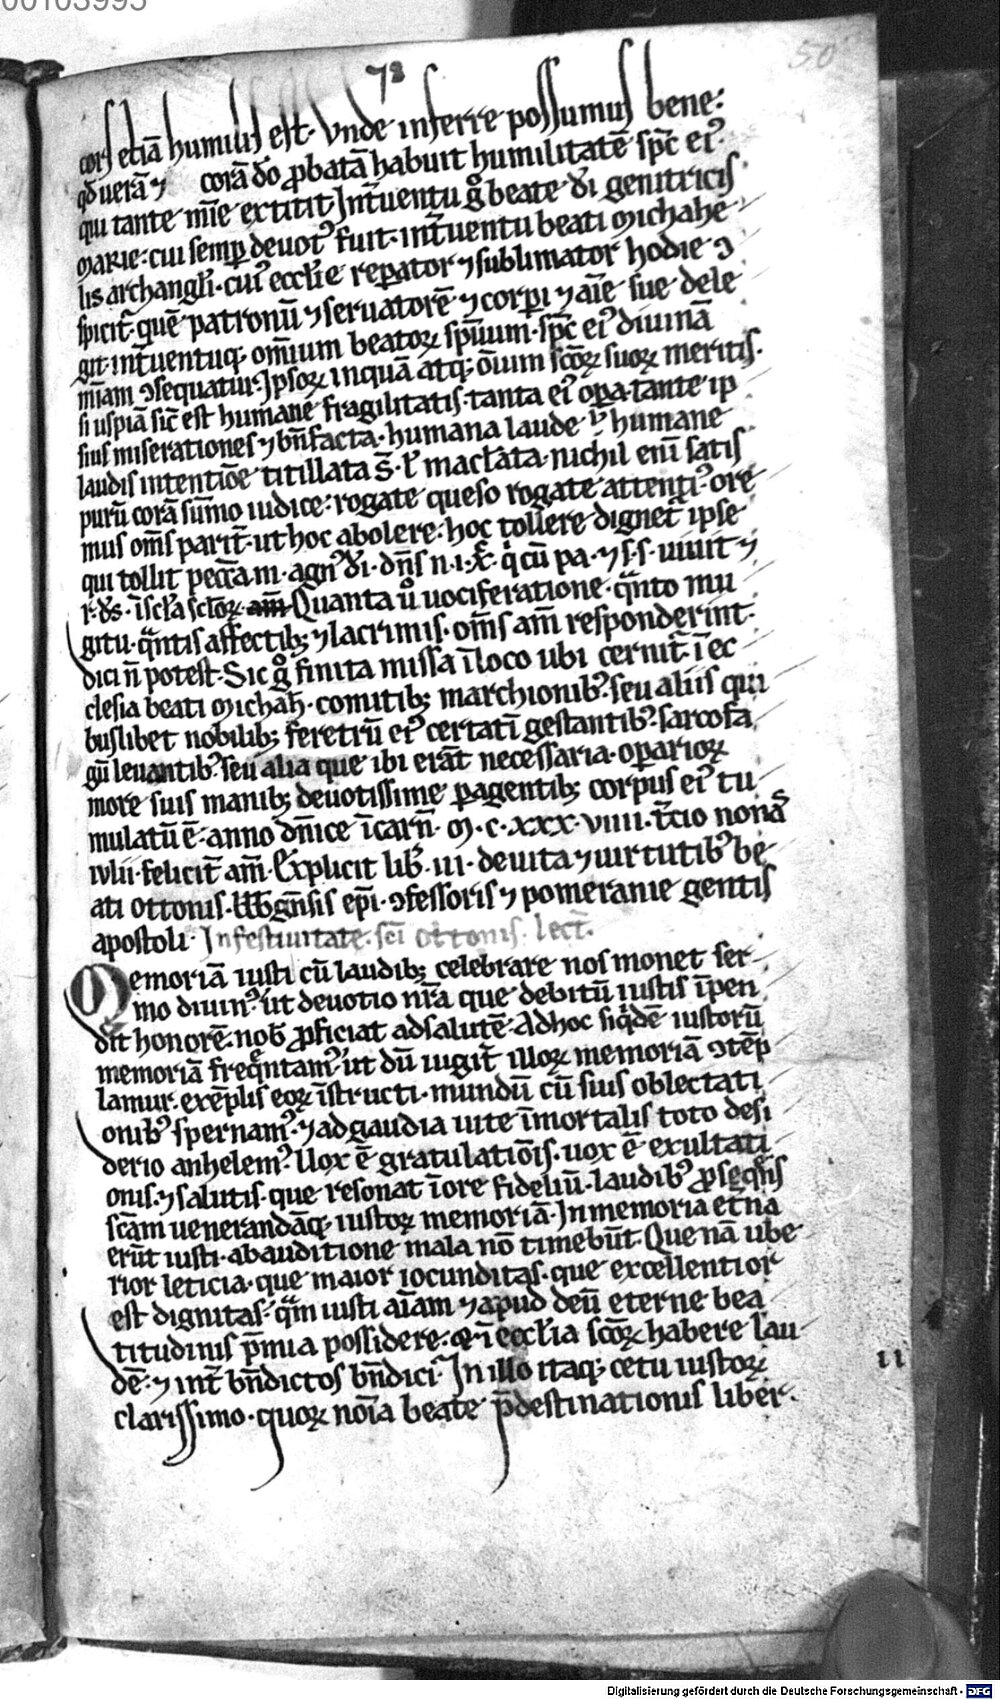 00103995
50
78
cors etiā humilis est. Vnde inferre possumus bene:
qđ uerā ⁊ corā dō ꝓbatā habuit humilitatē spc̄ eiꝰ.
qui tante mīe extitit. Int̄uentu gͦ beate dī genitricis
MARIE. cui semꝑ deuotꝰ fuit. int̄uentu beati Michahe
lis archangłi. cuiꝰ eccłie reꝑator ⁊ sublimator hodie ꝯ
spicit̄. quē patronū ⁊ seruatorē ⁊ corꝑi ⁊ aīe sue dele
git. int̄uentuq; omīum beatoꝝ spūum. spc̄ eiꝰ diuinā
mīam ꝯsequatur. Ipsoꝝ inquā atq; oīum scōꝝ suoꝝ meritis.
si uspiā sic̄ est humane fragilitatis. tanta eiꝰ oꝑa. tante ip
sius miserationes ⁊ bn̄facta. humana laude ł humane
laudis intentiōe titillata s̄. ł mactata. nichil eni satis
purū corā sūmo iudice: rogate queso rogate attentiꝰ. ore
mus om̄s parit̄. ut hoc abolere. hoc tollere dignet̄ ipse
qui tollit pecc̄a m. agnꝰ dī. dn̄s n. i. x̄. q̇ cū pa. ⁊ s. s. uiuit ⁊
r. ds̄. ī scła scłoꝝ am̄ Quanta ū uociferatione. qͣnto mu
gitu. qͣntis affectib; ⁊ lacrimis. om̄s am̄ responderint.
dici n̄ potest. Sic gͦ finita missa ī loco ubi cernit̄. ī ec
clesia beati Michah̄. comitib; marchionibꝰ. seu aliis qui
buslibet nobilib; feretrū eiꝰ certatī gestantibꝰ. sarcofa
gū leuantibꝰ. seu alia que ibi erāt necessaria. oꝑarioꝝ
more suis manib; deuotissime ꝑagentib; corpus eiꝰ tu
mulatū ē. anno dn̄ice īcarn̄. M. c. xxx. viiii. t̄cio nonas
ivlii. felicit̄ am̄. Explicit lib̄. iii. de uita ⁊ uirtutibꝰ be
ati ottonis. bbḡn̄sis ep̄i. ꝯfessoris ⁊ pomeranie gentis
apostoli. In festiuitate. sc̄i ottonis. lect̄.
Memoriā iusti cū laudib; celebrare nos monet ser
mo diuinꝰ. ut deuotio nr̄a que debitū iustis īpen
dit honorē. nob̄ ꝓficiat ad salutē. Ad hoc siqͥdē iustorū
memoriā freqͣntamꝰ. ut dū iugit̄ illoꝝ memoriā ꝯtēp
lamur. exēplis eoꝝ īstructi. mundū cū suis oblectati
onibꝰ spernamꝰ. ⁊ ad gaudia uite īmortalis toto desi
derio anhelemꝰ. Uox ē gratulatiōis. uox ē exultati
onis. ⁊ salutis. que resonat ī ore fideliū. laudibꝰ ꝓseqͣn̄s
scām uenerandāq; iustoꝝ memoriā. In memoria et̄na
erūt iusti. ab auditione mala nō timebūt. Que nā ube
rior leticia. que maior iocunditas. que excellentior
est dignitas. qͣm iusti aīam ⁊ apud deū eterne bea
titudinis p̄mia possidere. & ī eccłia scōꝝ habere lau
dē. ⁊ int̄ bn̄dictos bn̄dici. In illo itaq; cetu iustoꝝ
clarissimo. quoꝝ noīa beate p̄destinationis liber.
11
Digitalisierung gefördert durch die Deutsche Forschungsgemeinschaft - DFG